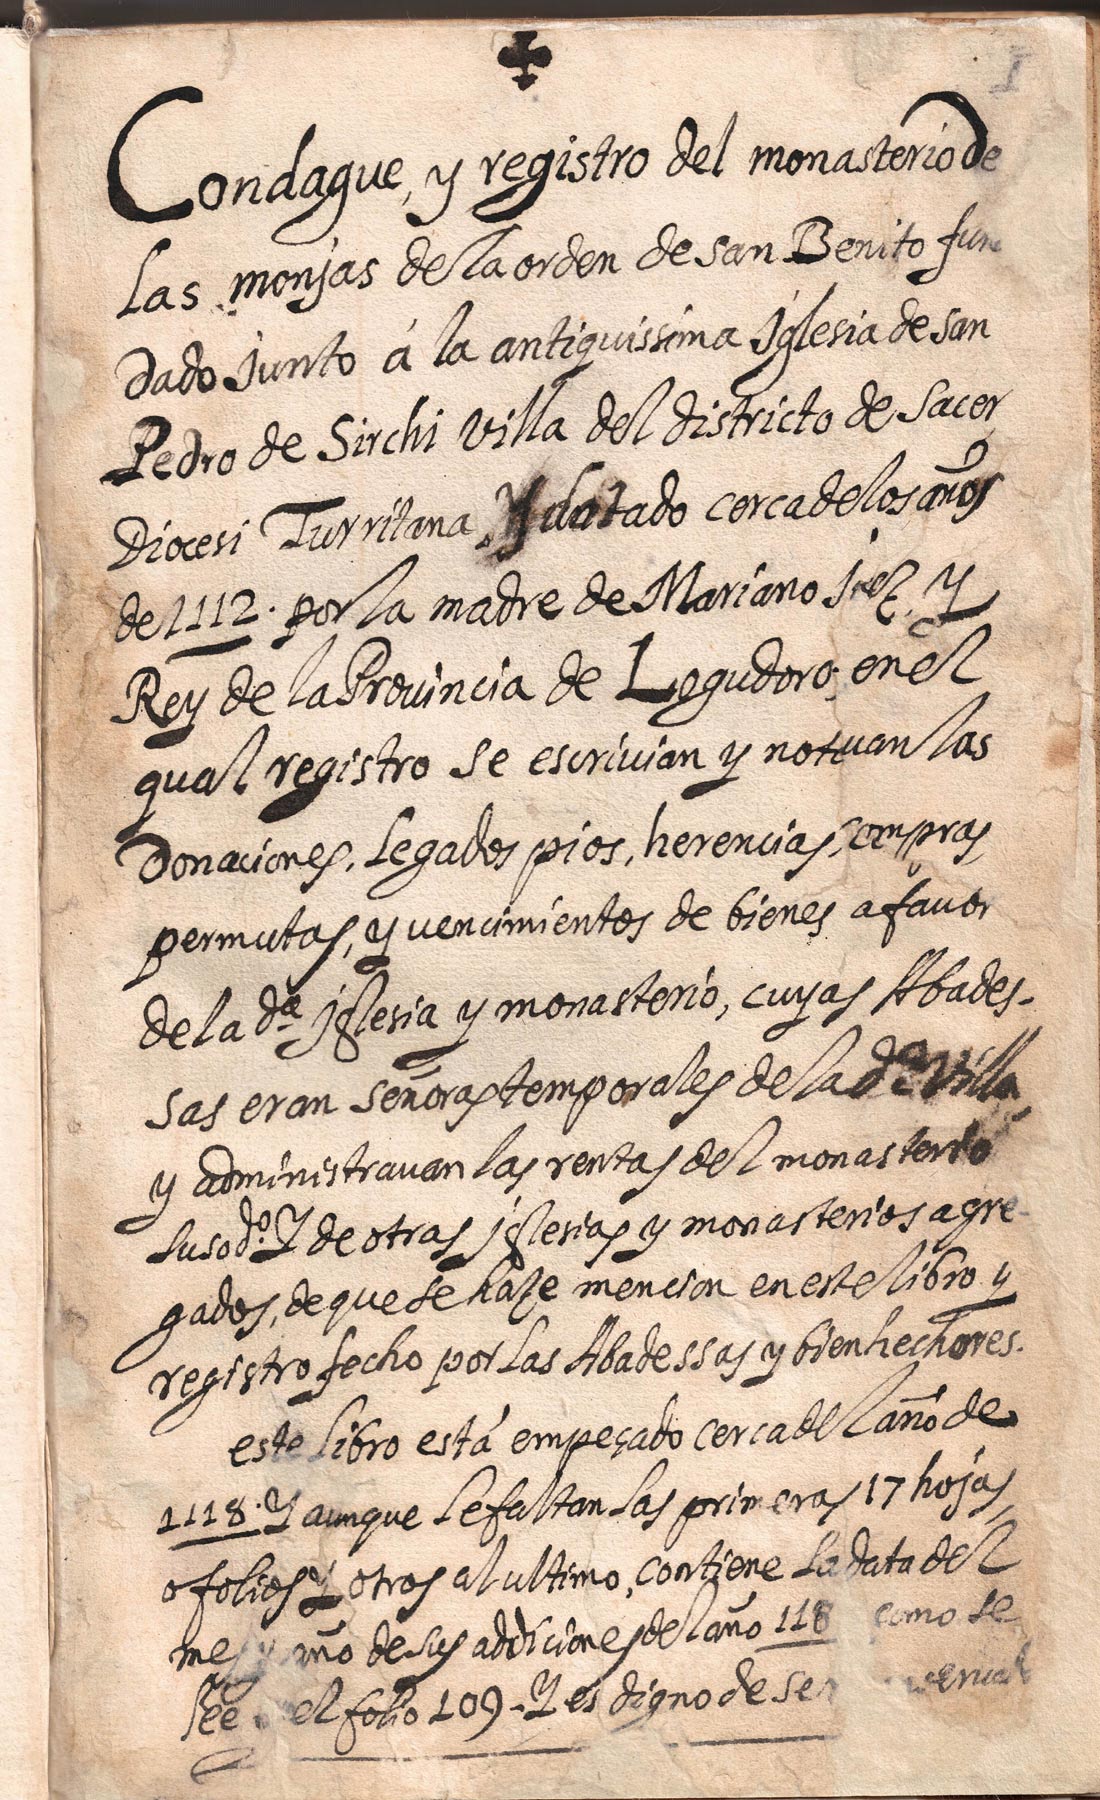 I
Condague, y registro del monasterio de
las monjas de la orden de san Benito fun
dado junto á la antiquissima Iglesia de san
Pedro de Sirchi villa del districto de Sacer
Diocesi Turritana, Y dotado cerca de los años
de 1112. por la madre de Mariano Juez, y
Rey de la Provincia de Logudoro, en el
qual registro se escrivian y notavan las
Donaciones, Legados pios, herencias, compras
permutas, y vencimientos de bienes a favor
de la dha Iglesia y monasterio, cuyas Abades-
sas eran señoras temporales de la dha Villa
y administravan las rentas del monasterio
susodho. Y de otras Iglesias y monasterios agre-
gados, de que se haze mencion en este libro y
registro fecho por las Abadessas y bienhechores.
este libro está empeçado cerca del año de
1118. Y aunque le faltan las primeras 17 hojas
o folios Y otros al ultimo, contiene la data del
mes y año de sus addiciones del año 118 como se
lee el folio 109 - Y es digno de ser